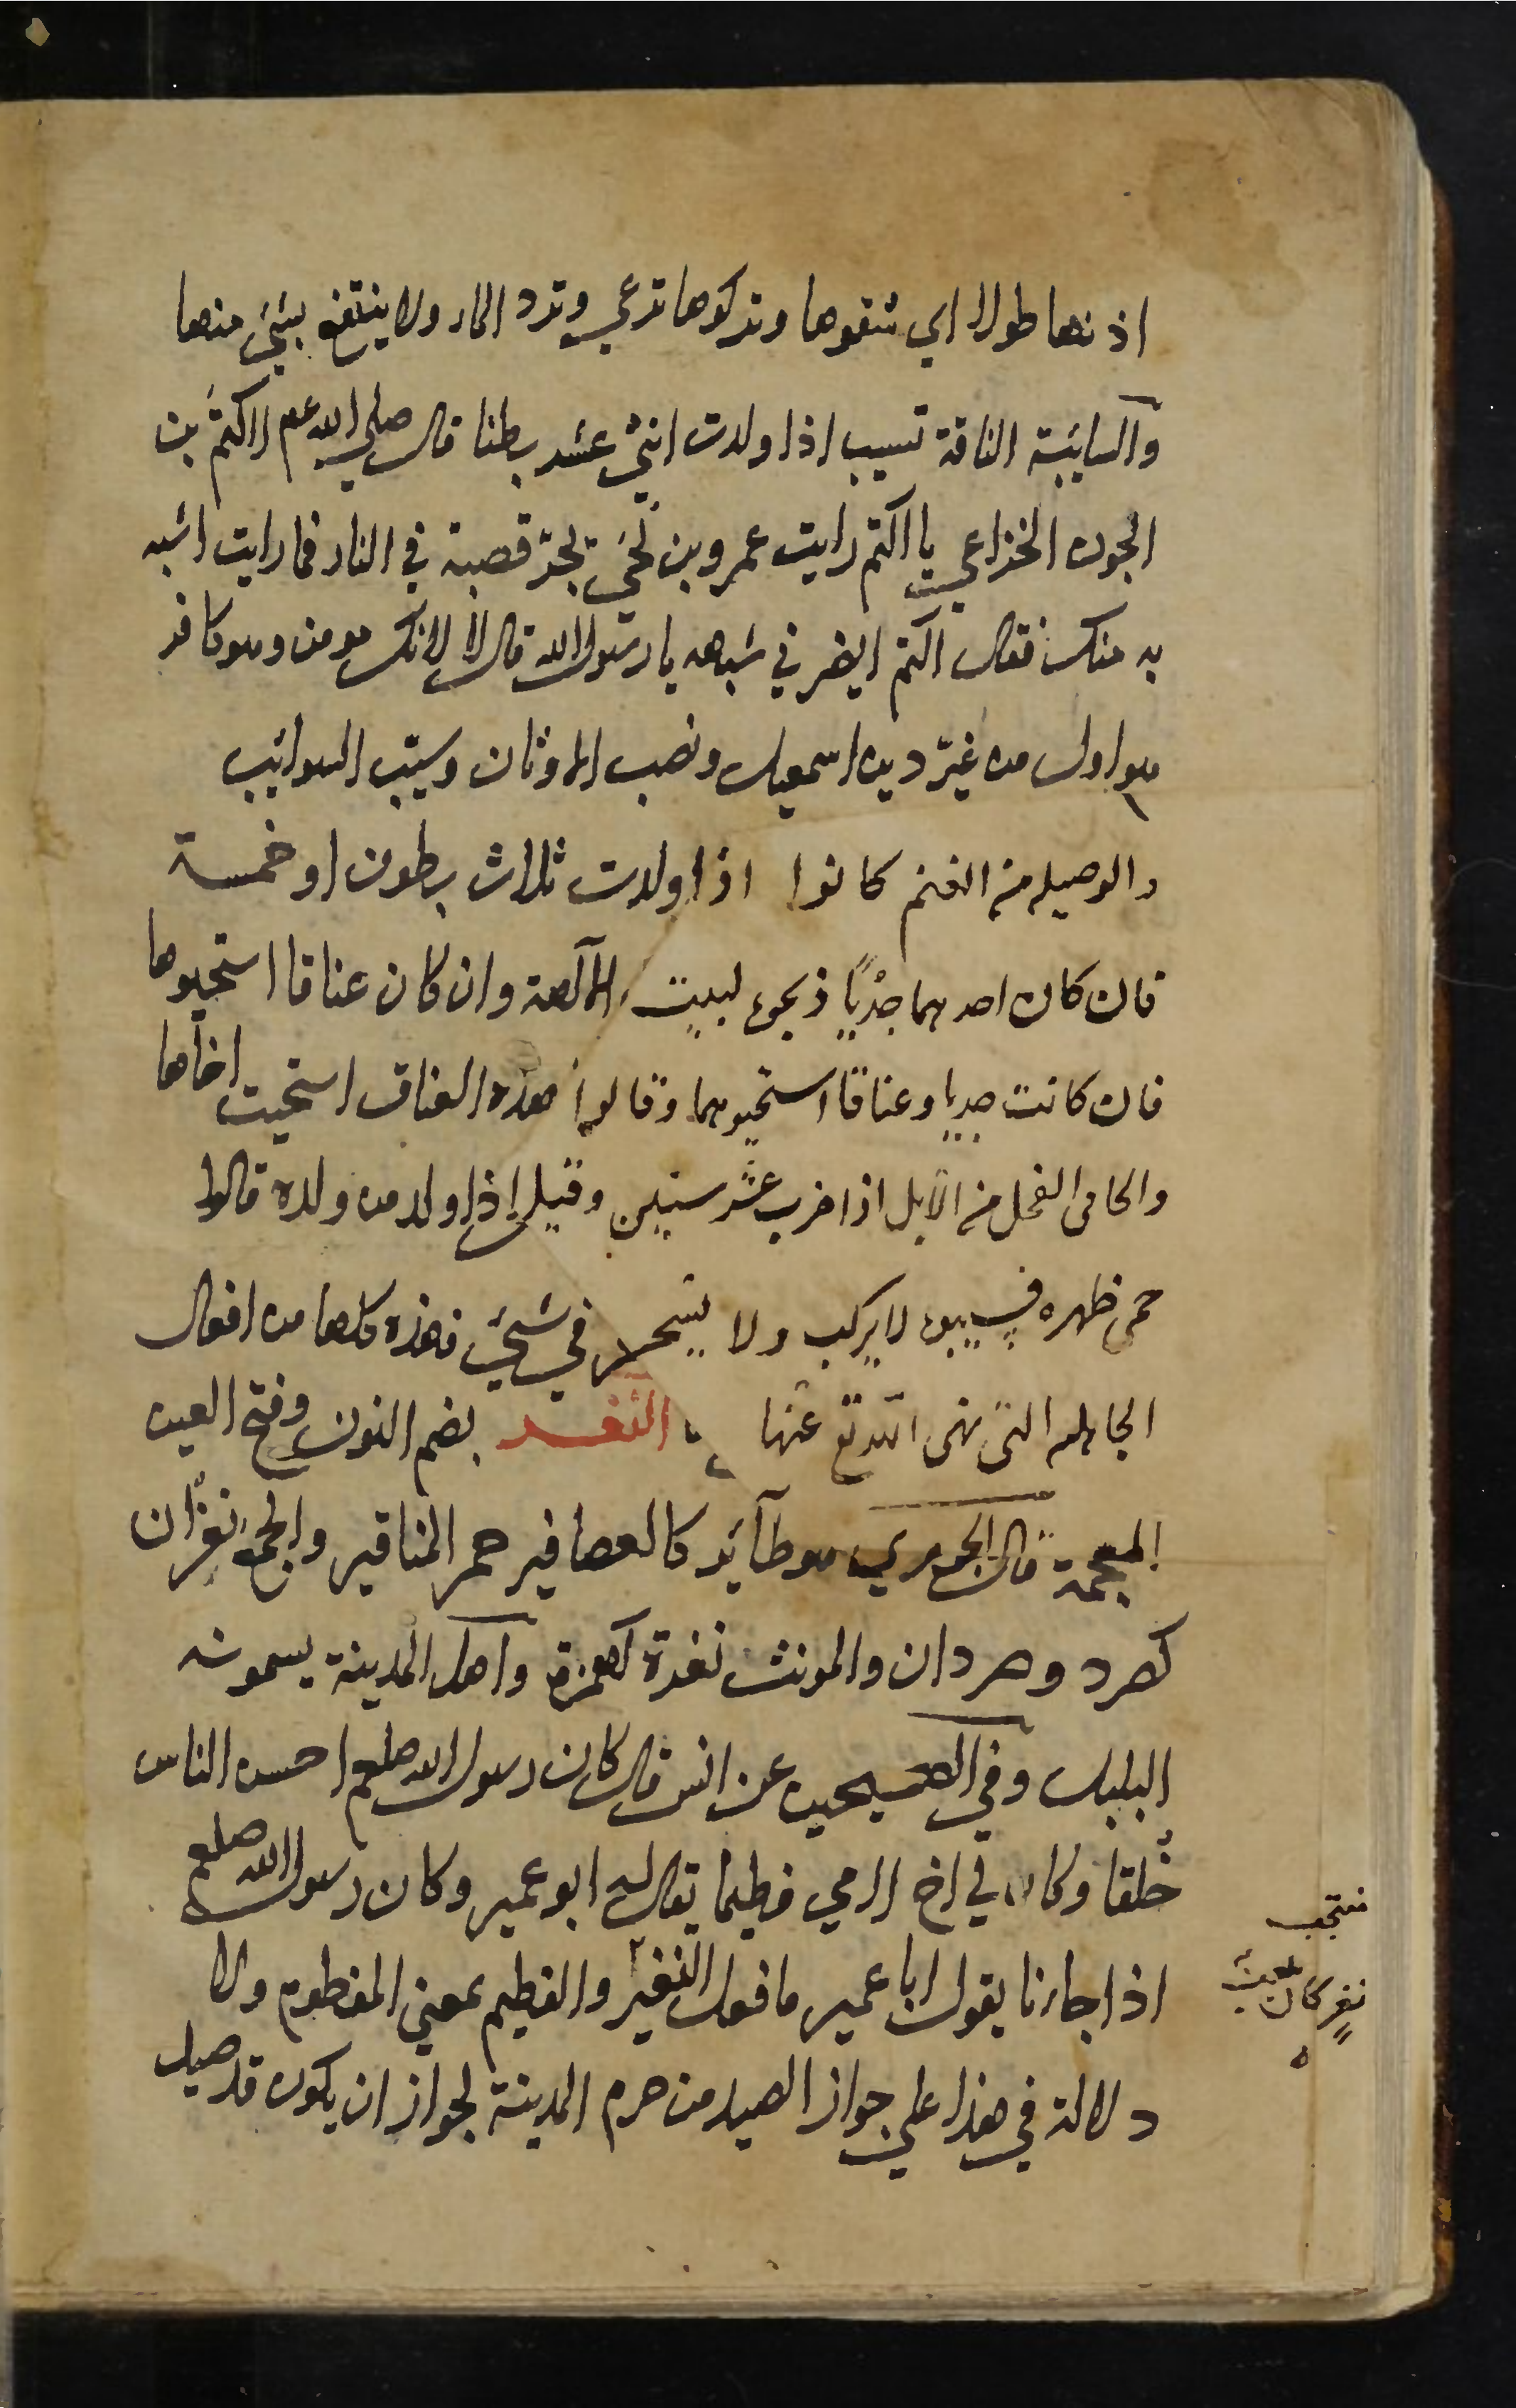 اذنها طولا اي شقوها وتركوها ترعي وترد الماء ولا ينتفع بشئ منها
والسايبة الناقة تسيب اذا ولدت اثني عشر بطنا قال صلي الله عم لاكثم بن
الجون الخزاعي يا اكثم رايت عمرو بن لحي يجر قصبه في النار فما رايت اشبه
به منك فقال اكثم ايضرني شبهه يا رسول الله قال لا لانك مومن وهو كافر
هو اول من غير دين اسمعيل ونصب الاوثان وسيب السوائب
والوصيله من الغنم كانوا اذا ولدت ثلاث بطون او خمسة
فان كان احدهما جديا ذبحوه لبيت الآلهة وان كان عناقا استحيوها
فان كانت جديا وعناقا استحيوهما وقالوا هذه العناق استحيت اخاها
والحامي الفحل من الابل اذا ضرب عشر سنين وقيل اذا ولد من ولده قالوا
حمي ظهره فيسيبوه لا يركب ولا يستحمل في شئ فهذه كلها من افعال
الجاهليه التي نهي الله تع عنها النغر بضم النون وفتح الغين
المعجمة قال الجوهري هو طآئر كالعصافير حمر المناقير والجمع نغران
كصرد وصردان والمونث نغرة كهمزة واهل المدينة يسمونه
البلبل وفي الصحيحين عن انس قال كان رسول الله صلعم احسن الناس
خلقا وكان لي اخ لامي فطيما يقال له ابو عمير وكان رسول الله صلعم
اذا جاءنا يقول ابا عمير ما فعل النغير والفطيم بمعني المفطوم ولا
دلالة في هذا علي جواز الصيد من حرم المدينة لجواز ان يكون قد صيد
نغر كان يلعب